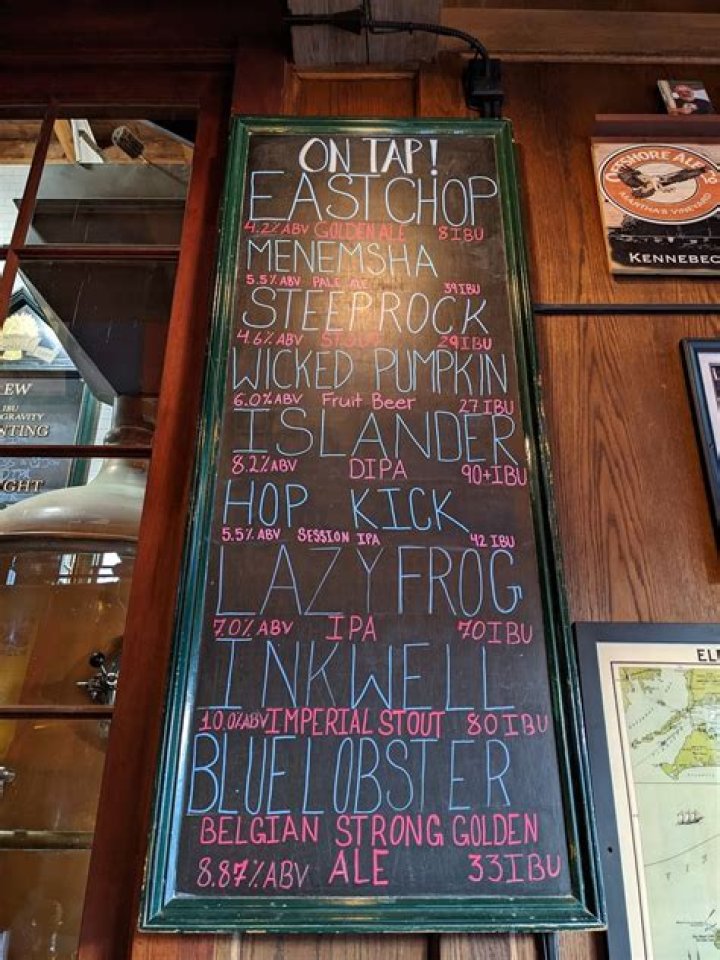 ON TAP!
EAST CHOP
4.2% ABV GOLDEN ALE 8 IBU
MENEMSHA
5.5% ABV PALE ALE 39 IBU
STEEPROCK
4.6% ABV STOUT 29 IBU
WICKED PUMPKIN
6.0% ABV Fruit Beer 27 IBU
ISLANDER
8.2% ABV DIPA 90+ IBU
HOP KICK
5.5% ABV SESSION IPA 42 IBU
LAZY FROG
7.0% ABV IPA 70 IBU
INKWELL
10.0% ABV IMPERIAL STOUT 80 IBU
BLUE LOBSTER
BELGIAN STRONG GOLDEN
8.87% ABV ALE 33 IBU
OFFSHORE ALE
MARTHA'S VINEYARD
KENNEBEC
EW
IBU
GRAVITY
NTING
GHT
EL